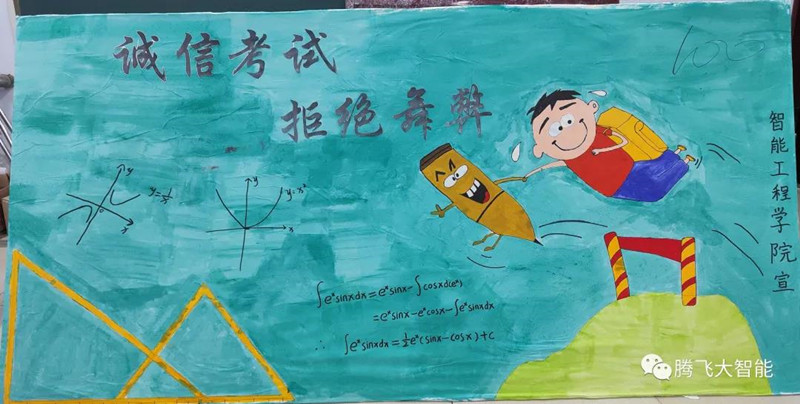 诚信考试
拒绝舞弊
100
智能工程学院宣
y
y=1/x
x
y
y=x²
x
∫eˣsinxdx=eˣsinx-∫cosxd(eˣ)
=eˣsinx-eˣcosx-∫eˣsinxdx
∴ ∫eˣsinxdx=½eˣ(sinx-cosx)+C
腾飞大智能